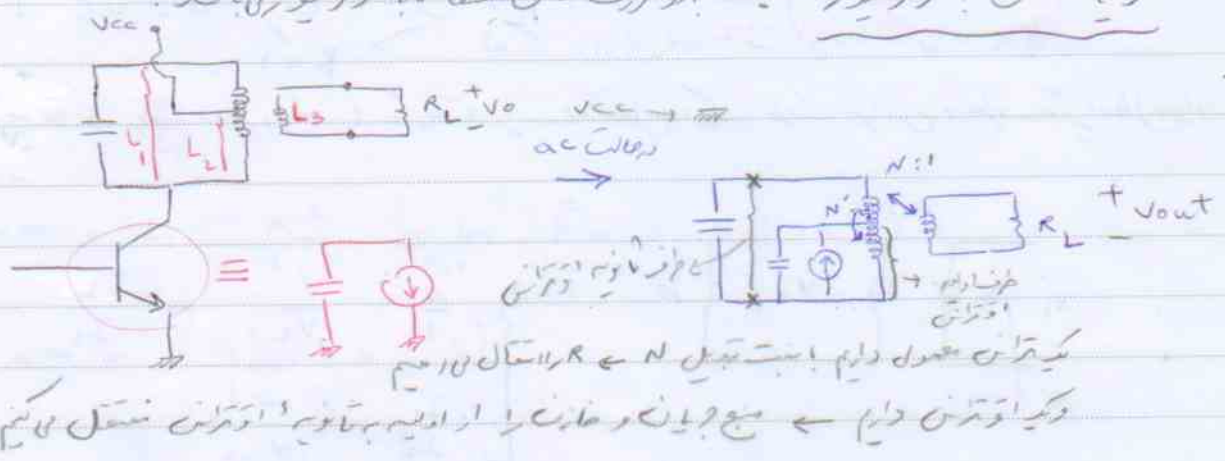 Vcc
L1
L2
L3
RL + Vo -
Vcc →
درحالت ac
→
N:1
N'
RL
+ Vout -
≡
طرف ثانویه اتوترانس
طرف اولیه
اتوترانس
یک ترانس معمولی داریم با نسبت تبدیل N ← R را انتقال می دهیم
و یک اتوترانس داریم ← منبع جریان و خازن را از اولیه به ثانویه اتوترانس منتقل می کنیم